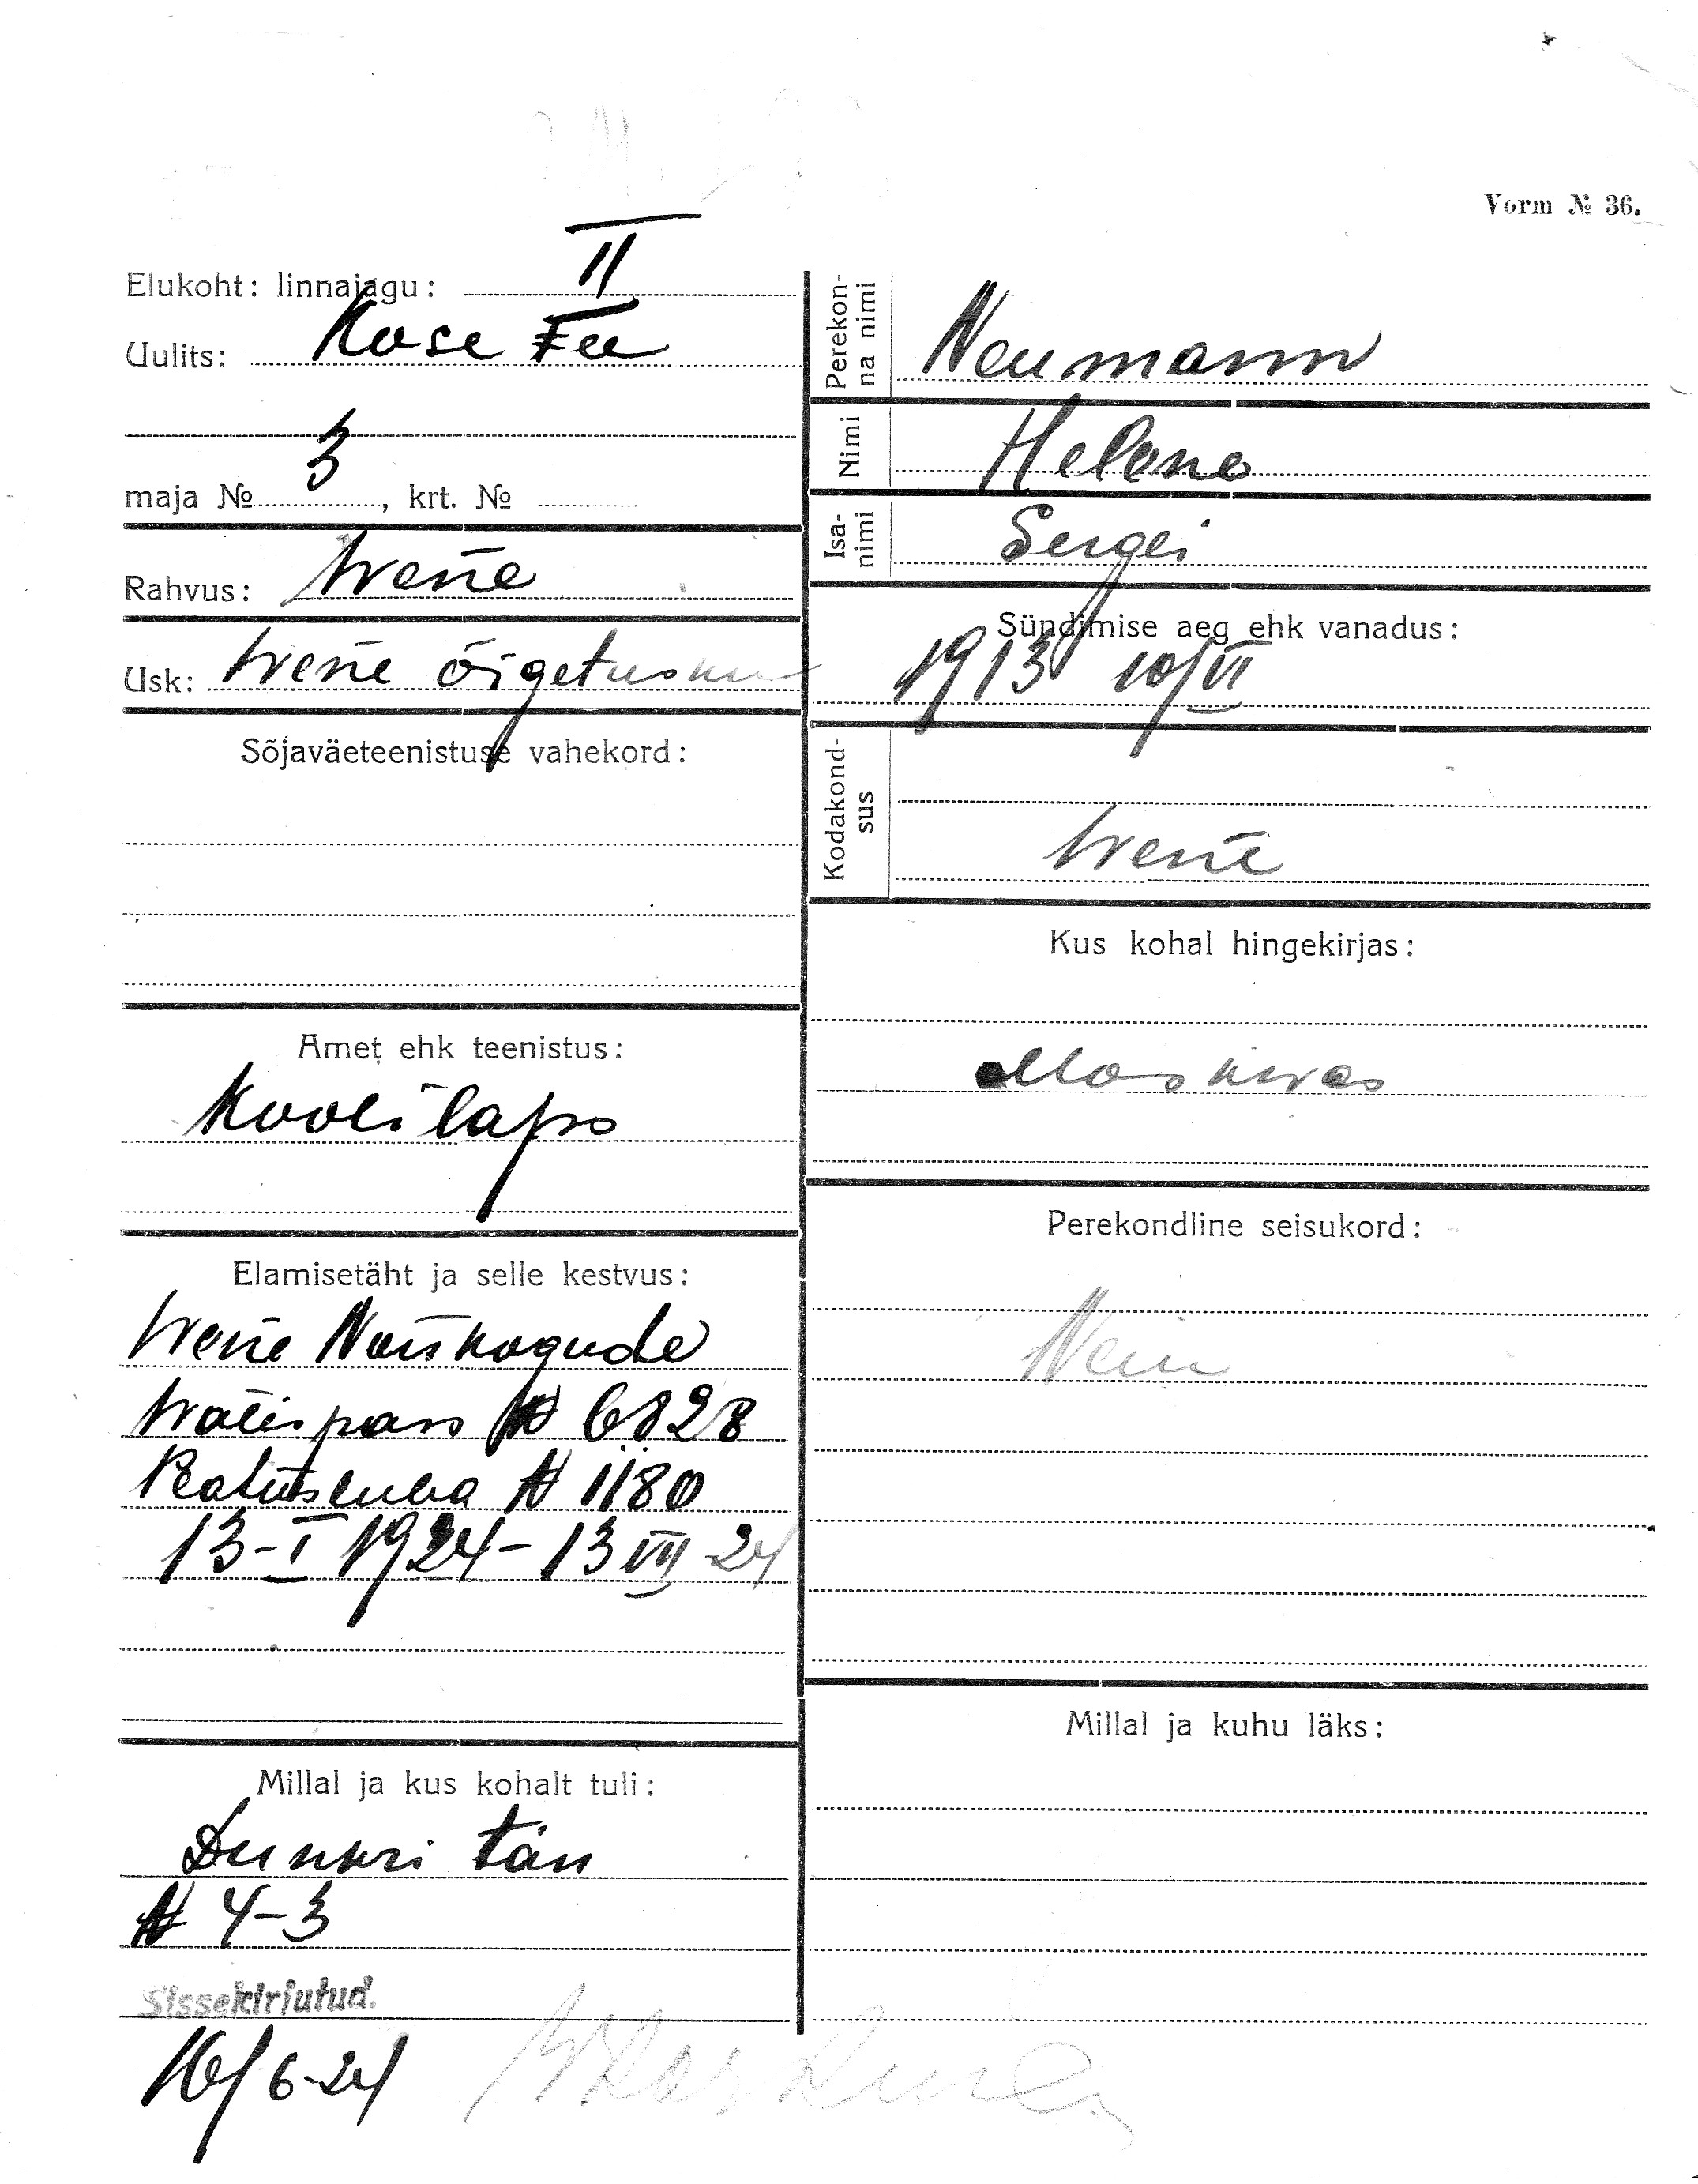 Vorm № 36.
Elukoht: linnajagu: II
Uulits: Kose Tee
maja № 3, krt. №
Rahvus: Wene
Usk: Wene õigetusku
Sõjaväeteenistuse vahekord:
Amet ehk teenistus:
Koolilaps
Elamisetäht ja selle kestvus:
Wene Nõukogude
Wälispass № 6828
Peatusluba № 1180
13-I 1924-13 VII 24
Millal ja kus kohalt tuli:
Dunkri tän
№ 4-3
Sissekirjutud.
16/6-24
Perekon-
na nimi
Neumann
Nimi
Helene
Isa-
nimi
Sergei
Sündimise aeg ehk vanadus:
1913 10/VI
Kodakond-
sus
Wene
Kus kohal hingekirjas:
Moskwas
Perekondline seisukord:
Nein
Millal ja kuhu läks: